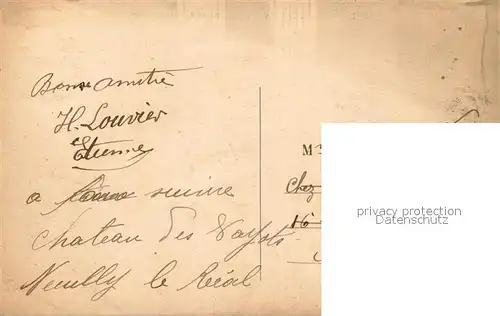 Bonne amitié
H. Louvier
Etienne
a faire suivre
Chateau des Vayots
Neuilly le Réal
M
Chez
16
privacy protection
Datenschutz